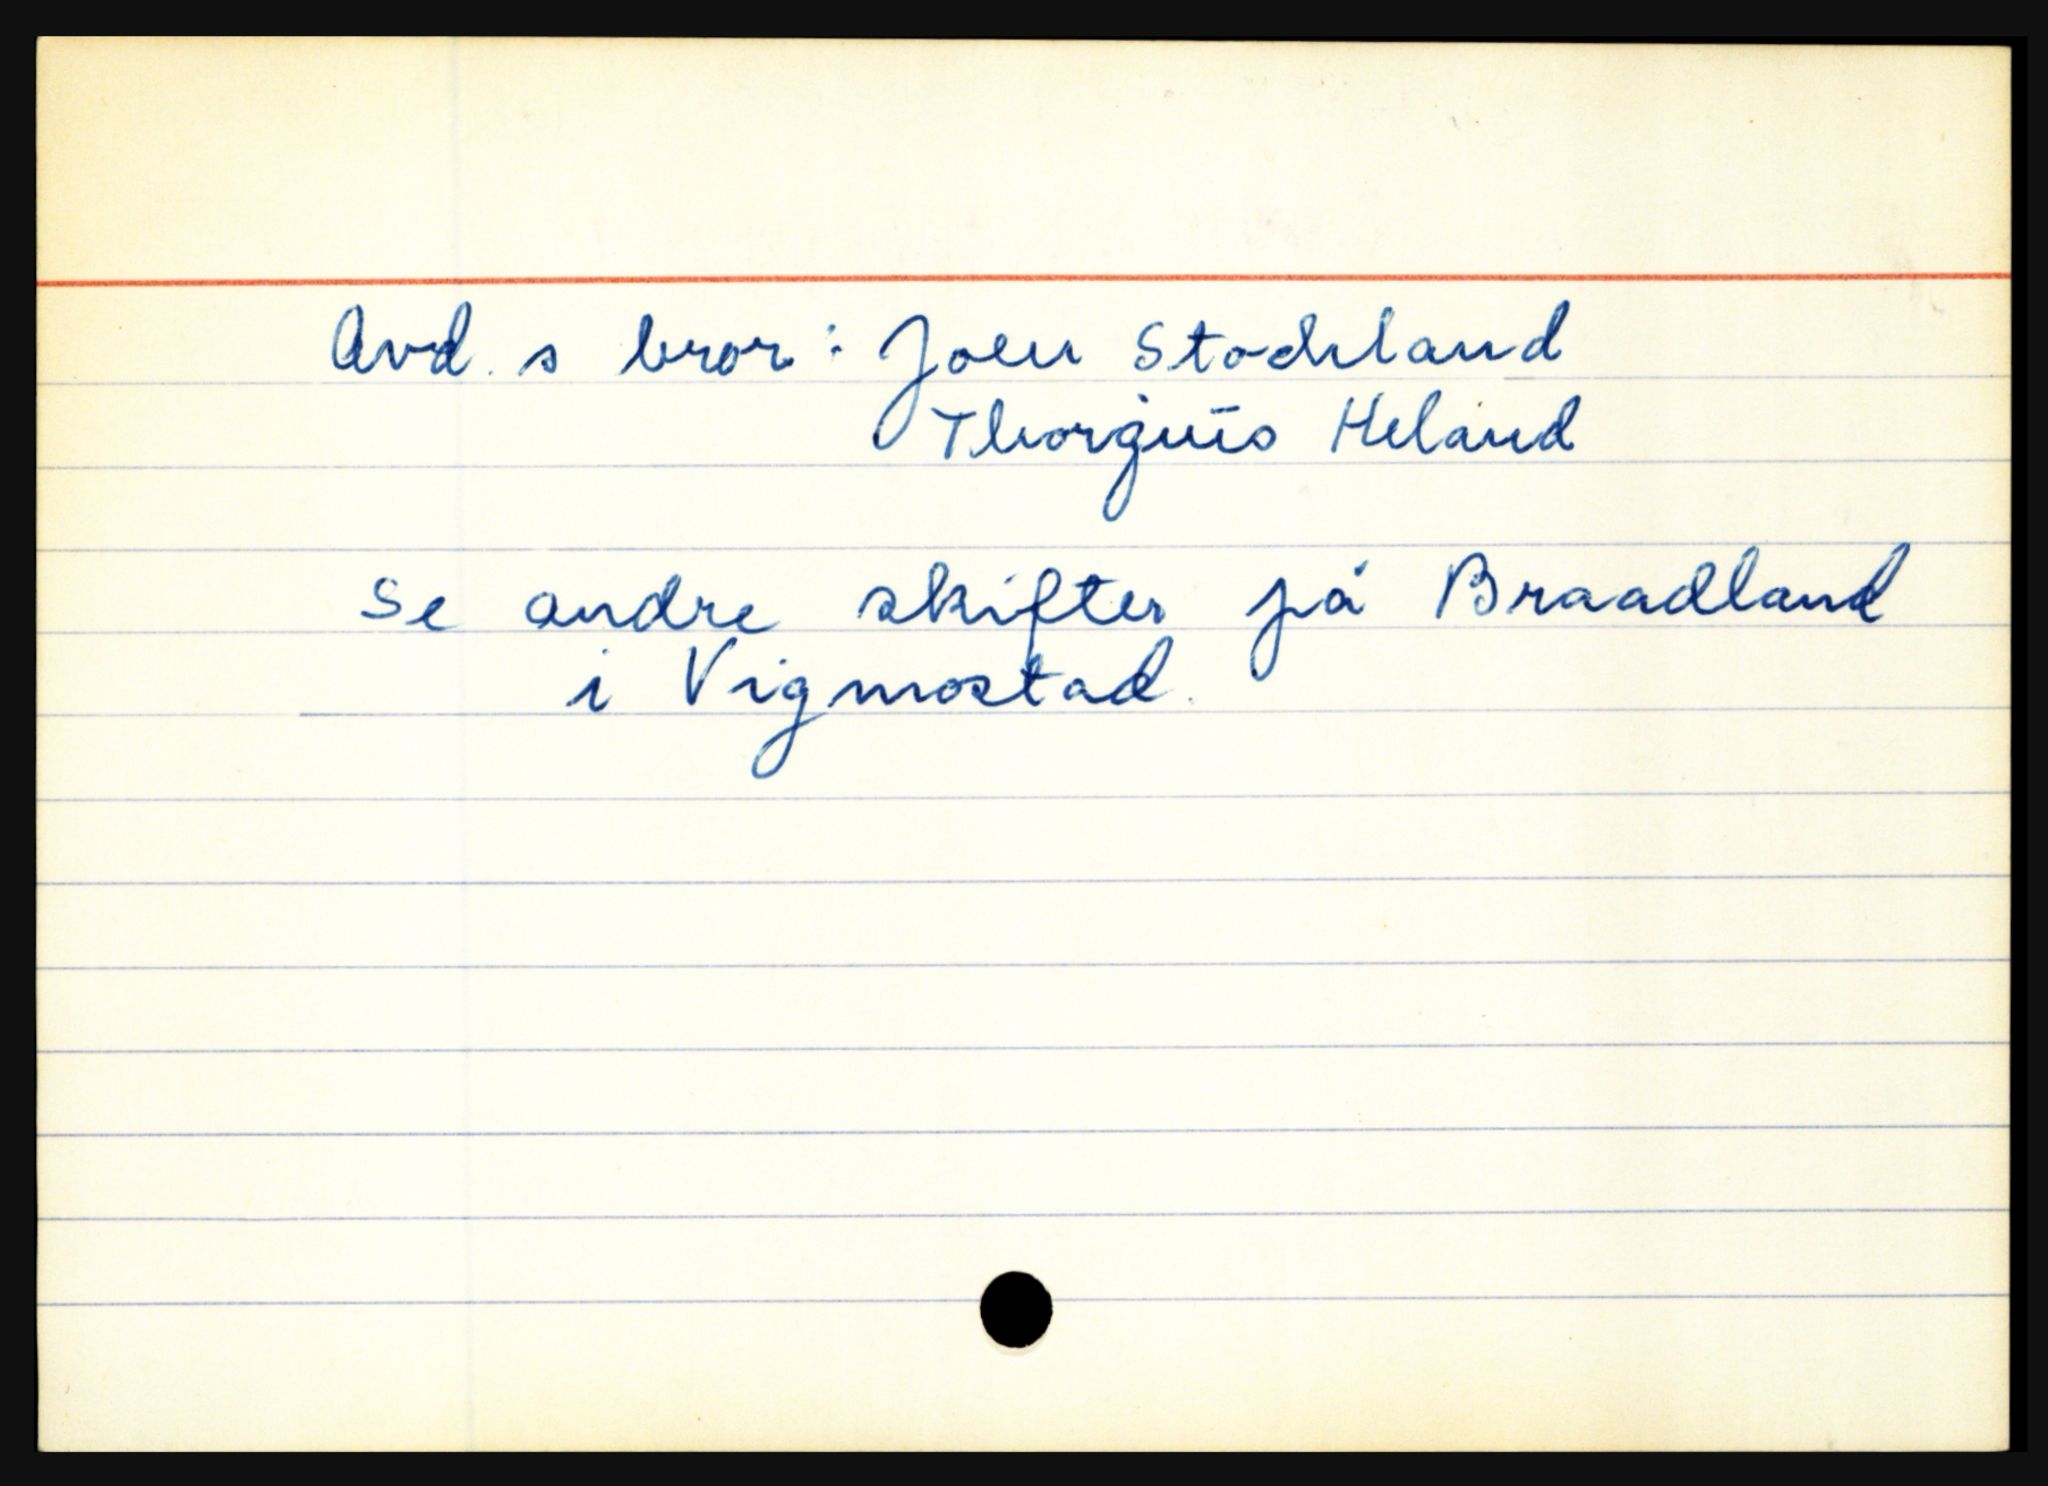 Avd. s bror: Joen Stochland
Thorguis Heland
Se andre skifter på Braadland
i Vigmostad.